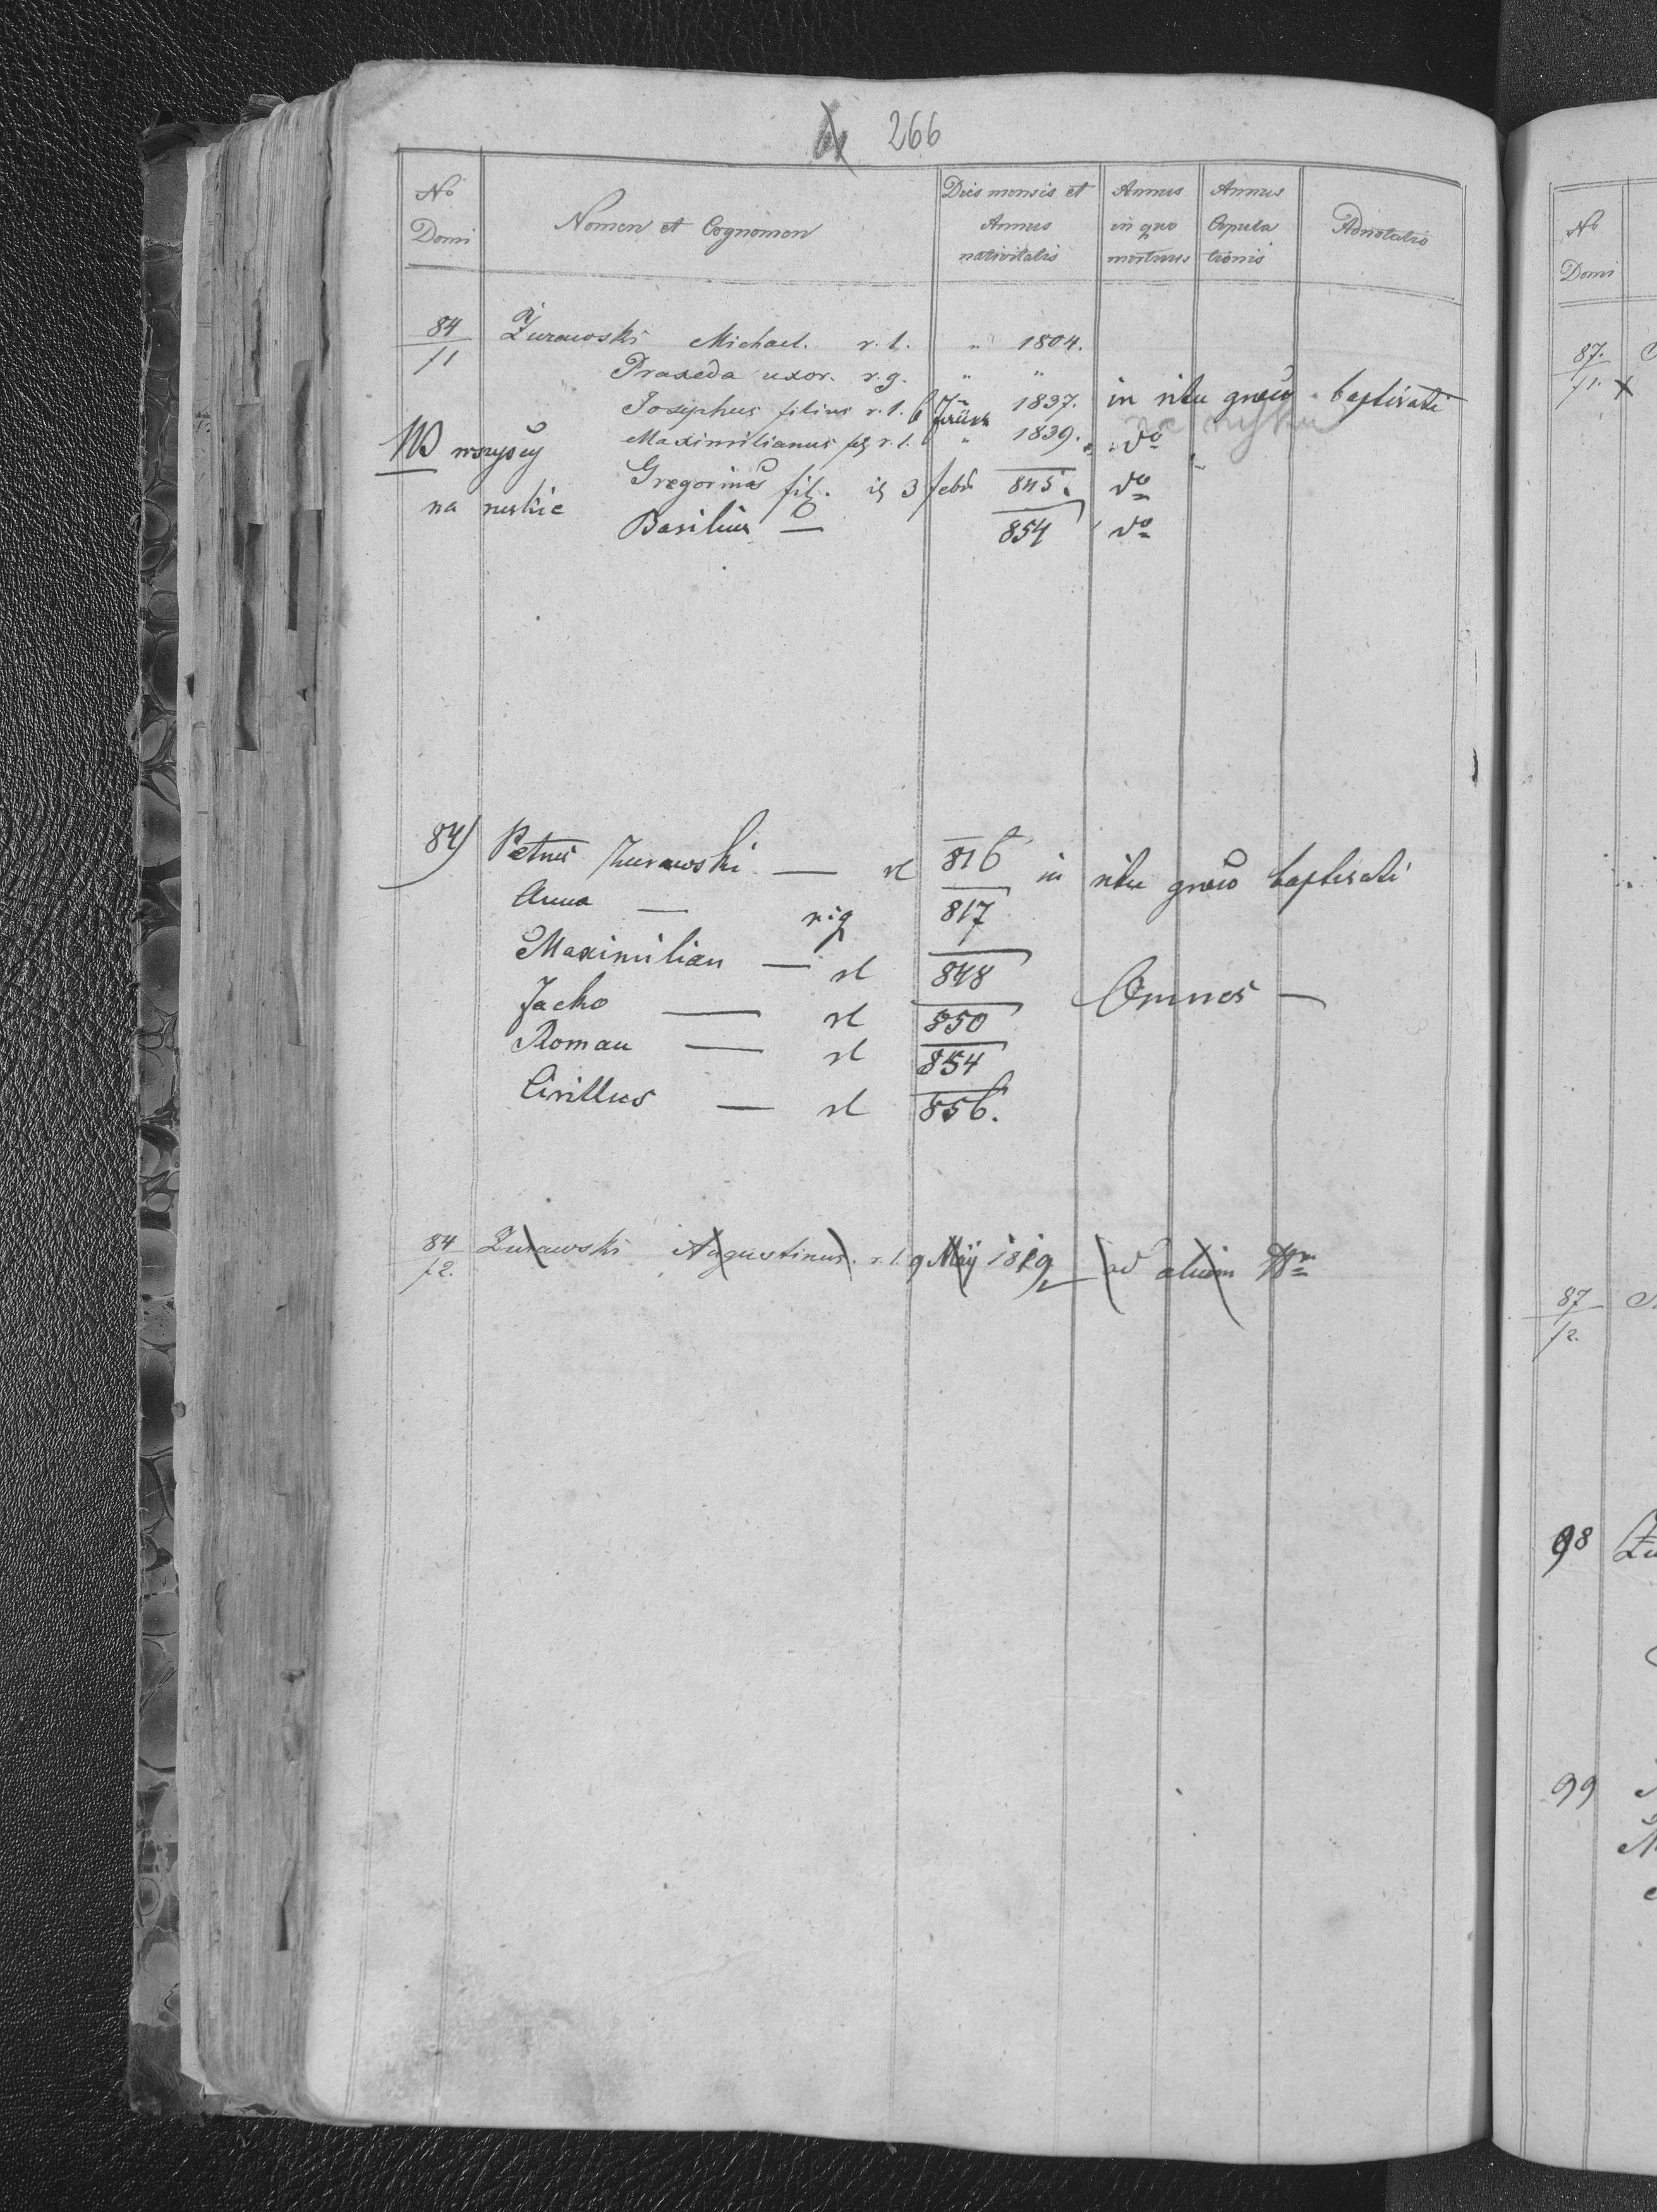 266
No Domi
Nomen et Cognomen
Dies mensis et Annus nativitatis
Annus in quo mortuus
Annus Copula tionis
Adnotatio
84/1 Żurawski Michael. r. l. " 1804.
Praxeda uxor. r. g. " "
Josephus filius r. l. 1837. in ritu graeco baptisati
Maximilianus fil r. l. " 1839. do
NB wszyscy
Gregorius fil. 3 febr 845. do
na ruskie
Basilius — 854 do
84) Petrus Żurawski — rl 816 in ritu graeco baptisati
Anna — rig 817
Maximilian — rl 848
Omnes —
Jacko — rl 850
Roman — rl 854
Cirillus — rl 856.
84/2. Żurawski Augustinus. r. l. 9 Maij 1819 ad alium Nrm
No Domi
87. /1. x
87 /2.
98 Żu
99